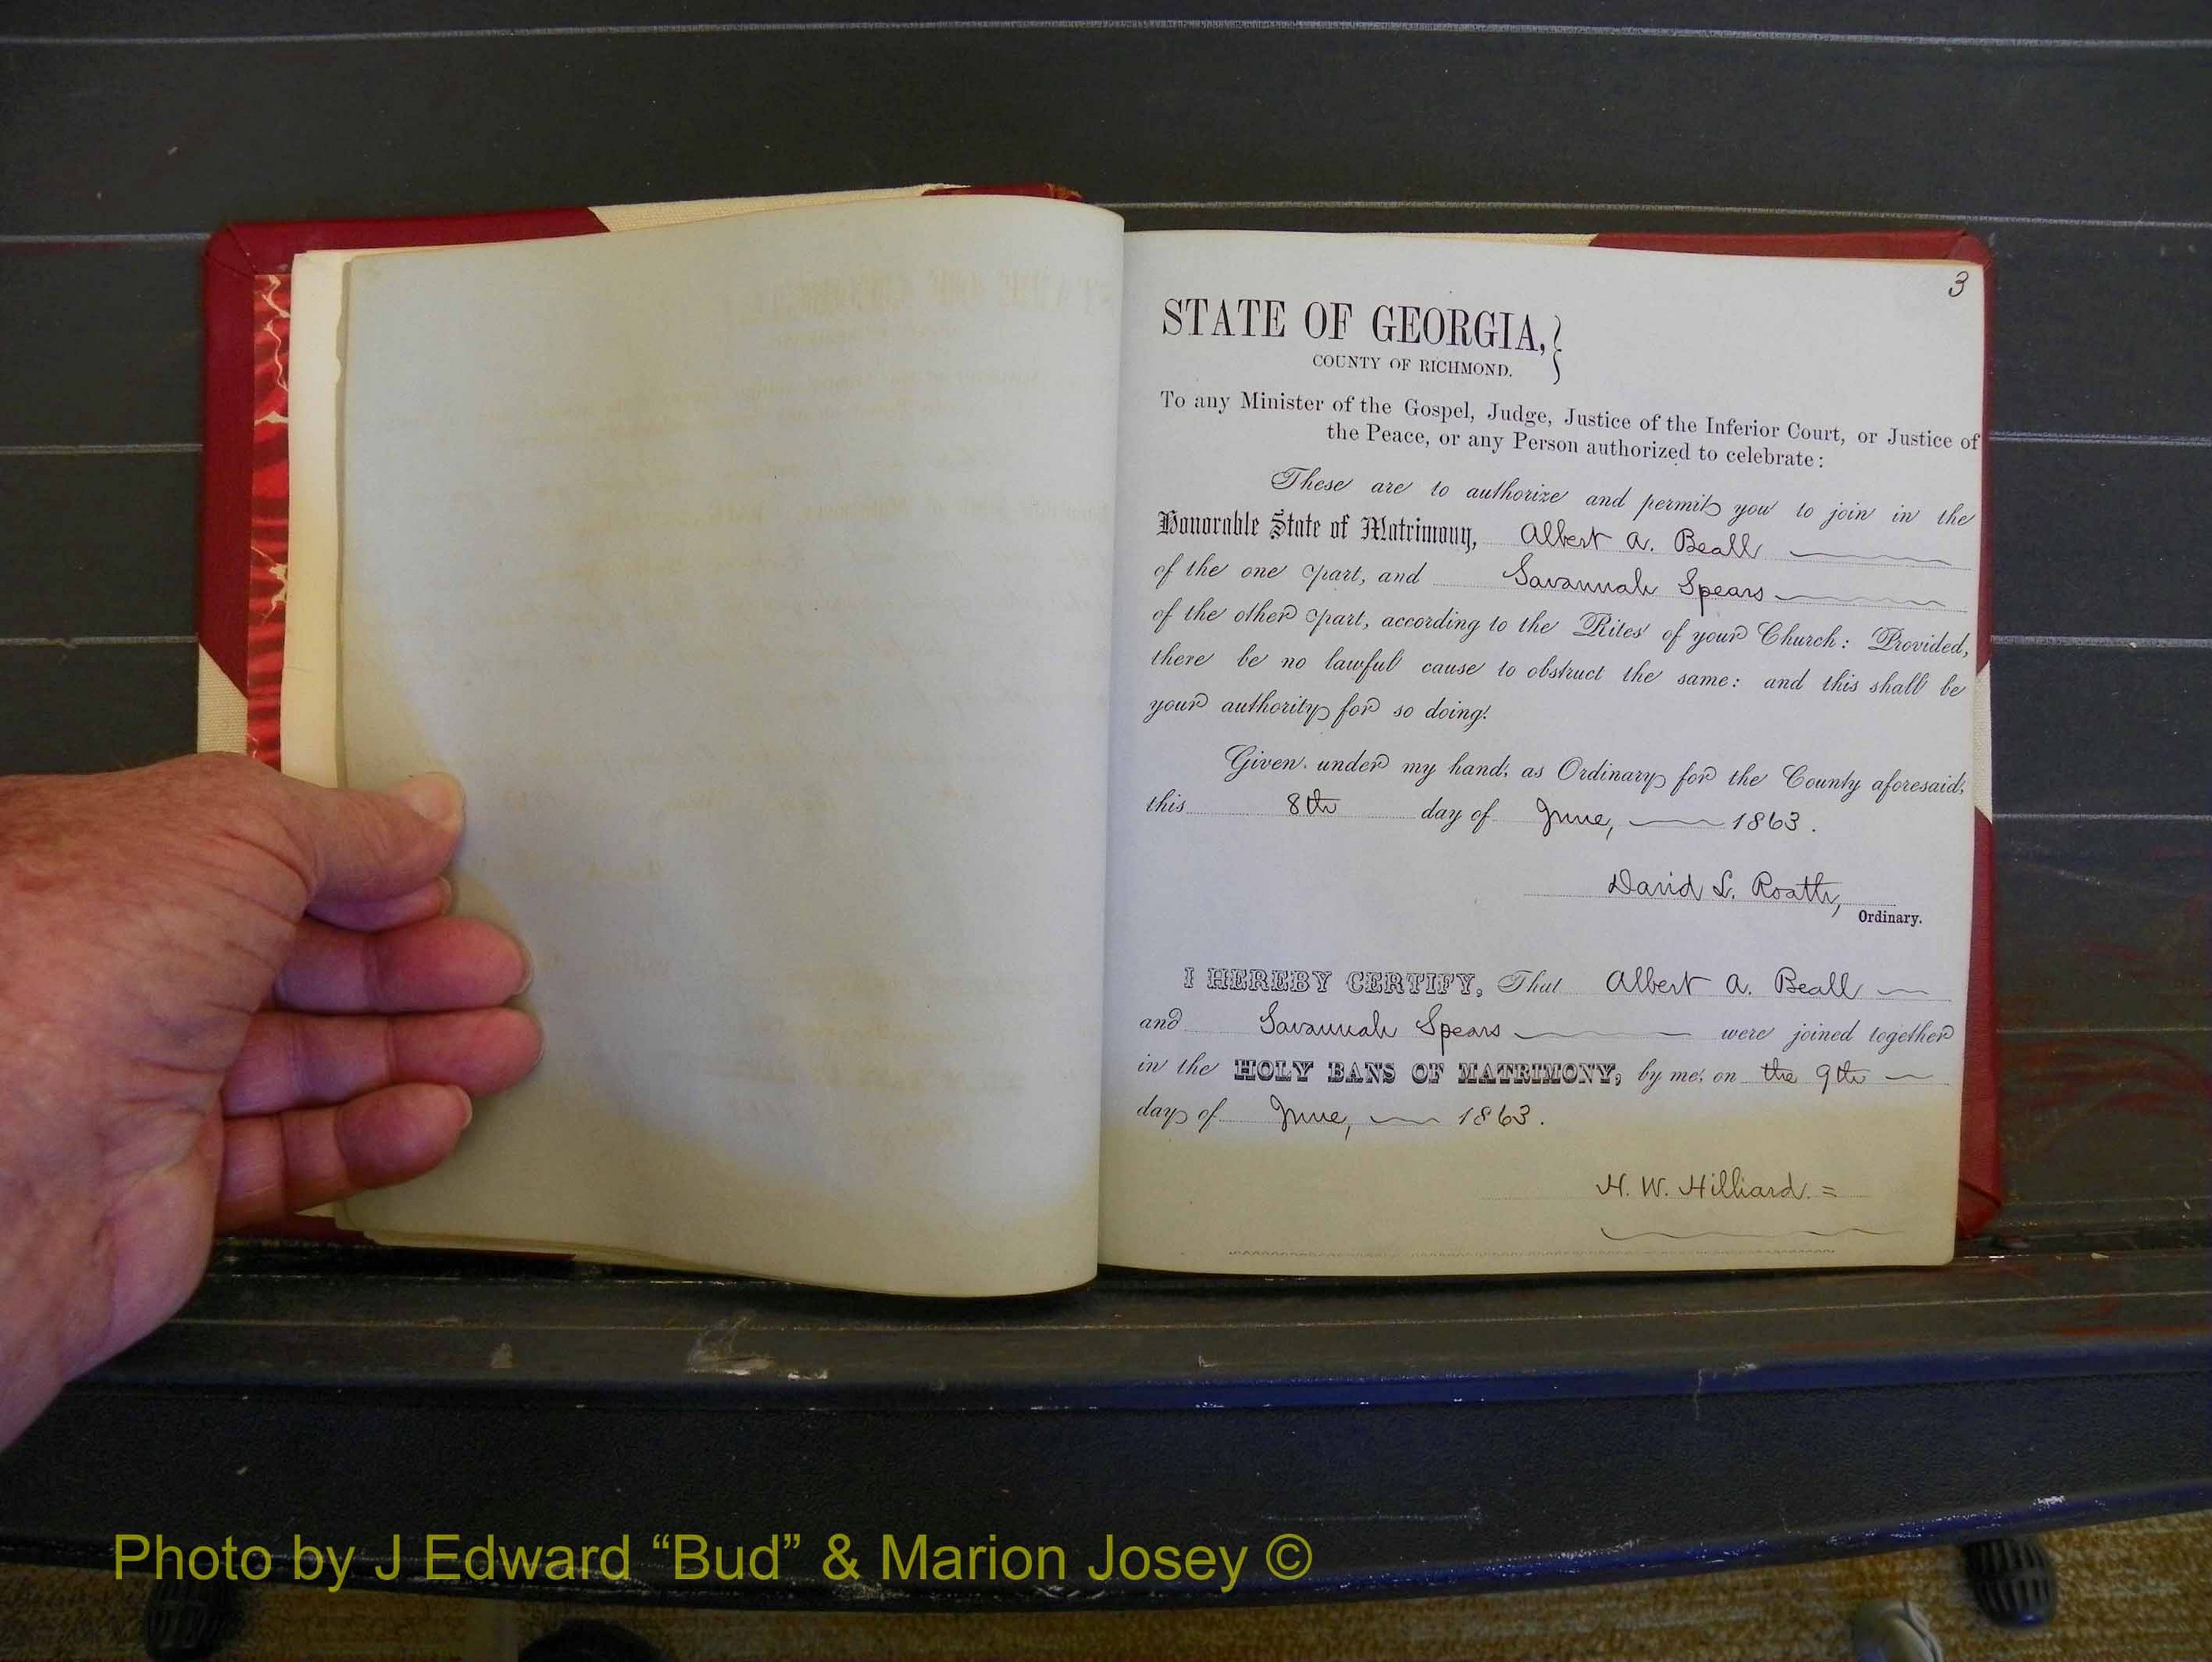 3
STATE OF GEORGIA,
COUNTY OF RICHMOND.
To any Minister of the Gospel, Judge, Justice of the Inferior Court, or Justice of
the Peace, or any Person authorized to celebrate:
These are to authorize and permit you to join in the
Honorable State of Matrimony, Albert A. Beall
of the one part, and Savannah Spears
of the other part, according to the Rites of your Church: Provided,
there be no lawful cause to obstruct the same: and this shall be
your authority for so doing.
Given under my hand, as Ordinary for the County aforesaid,
this 8th day of June, 1863.
David L. Roath,
Ordinary.
I HEREBY CERTIFY, That Albert A. Beall
and Savannah Spears were joined together
in the HOLY BANS OF MATRIMONY, by me, on the 9th
day of June, 1863.
H. W. Hilliard.
Photo by J Edward “Bud” & Marion Josey ©